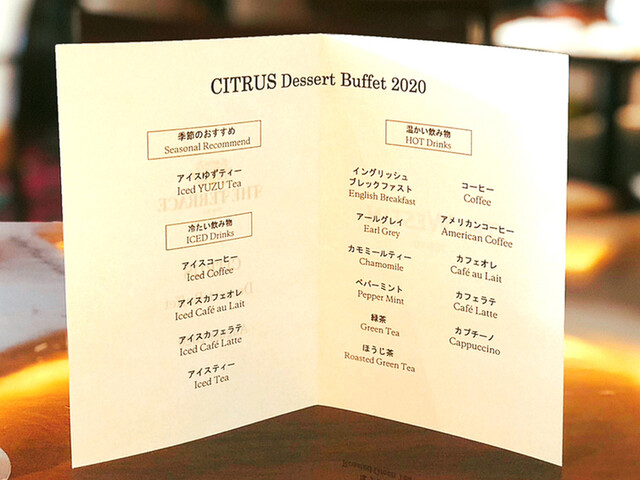 CITRUS Dessert Buffet 2020
季節のおすすめ
Seasonal Recommend
アイスゆずティー
Iced YUZU Tea
冷たい飲み物
ICED Drinks
アイスコーヒー
Iced Coffee
アイスカフェオレ
Iced Café au Lait
アイスカフェラテ
Iced Café Latte
アイスティー
Iced Tea
温かい飲み物
HOT Drinks
イングリッシュ
ブレックファスト
English Breakfast
アールグレイ
Earl Grey
カモミールティー
Chamomile
ペパーミント
Pepper Mint
緑茶
Green Tea
ほうじ茶
Roasted Green Tea
コーヒー
Coffee
アメリカンコーヒー
American Coffee
カフェオレ
Café au Lait
カフェラテ
Café Latte
カプチーノ
Cappuccino